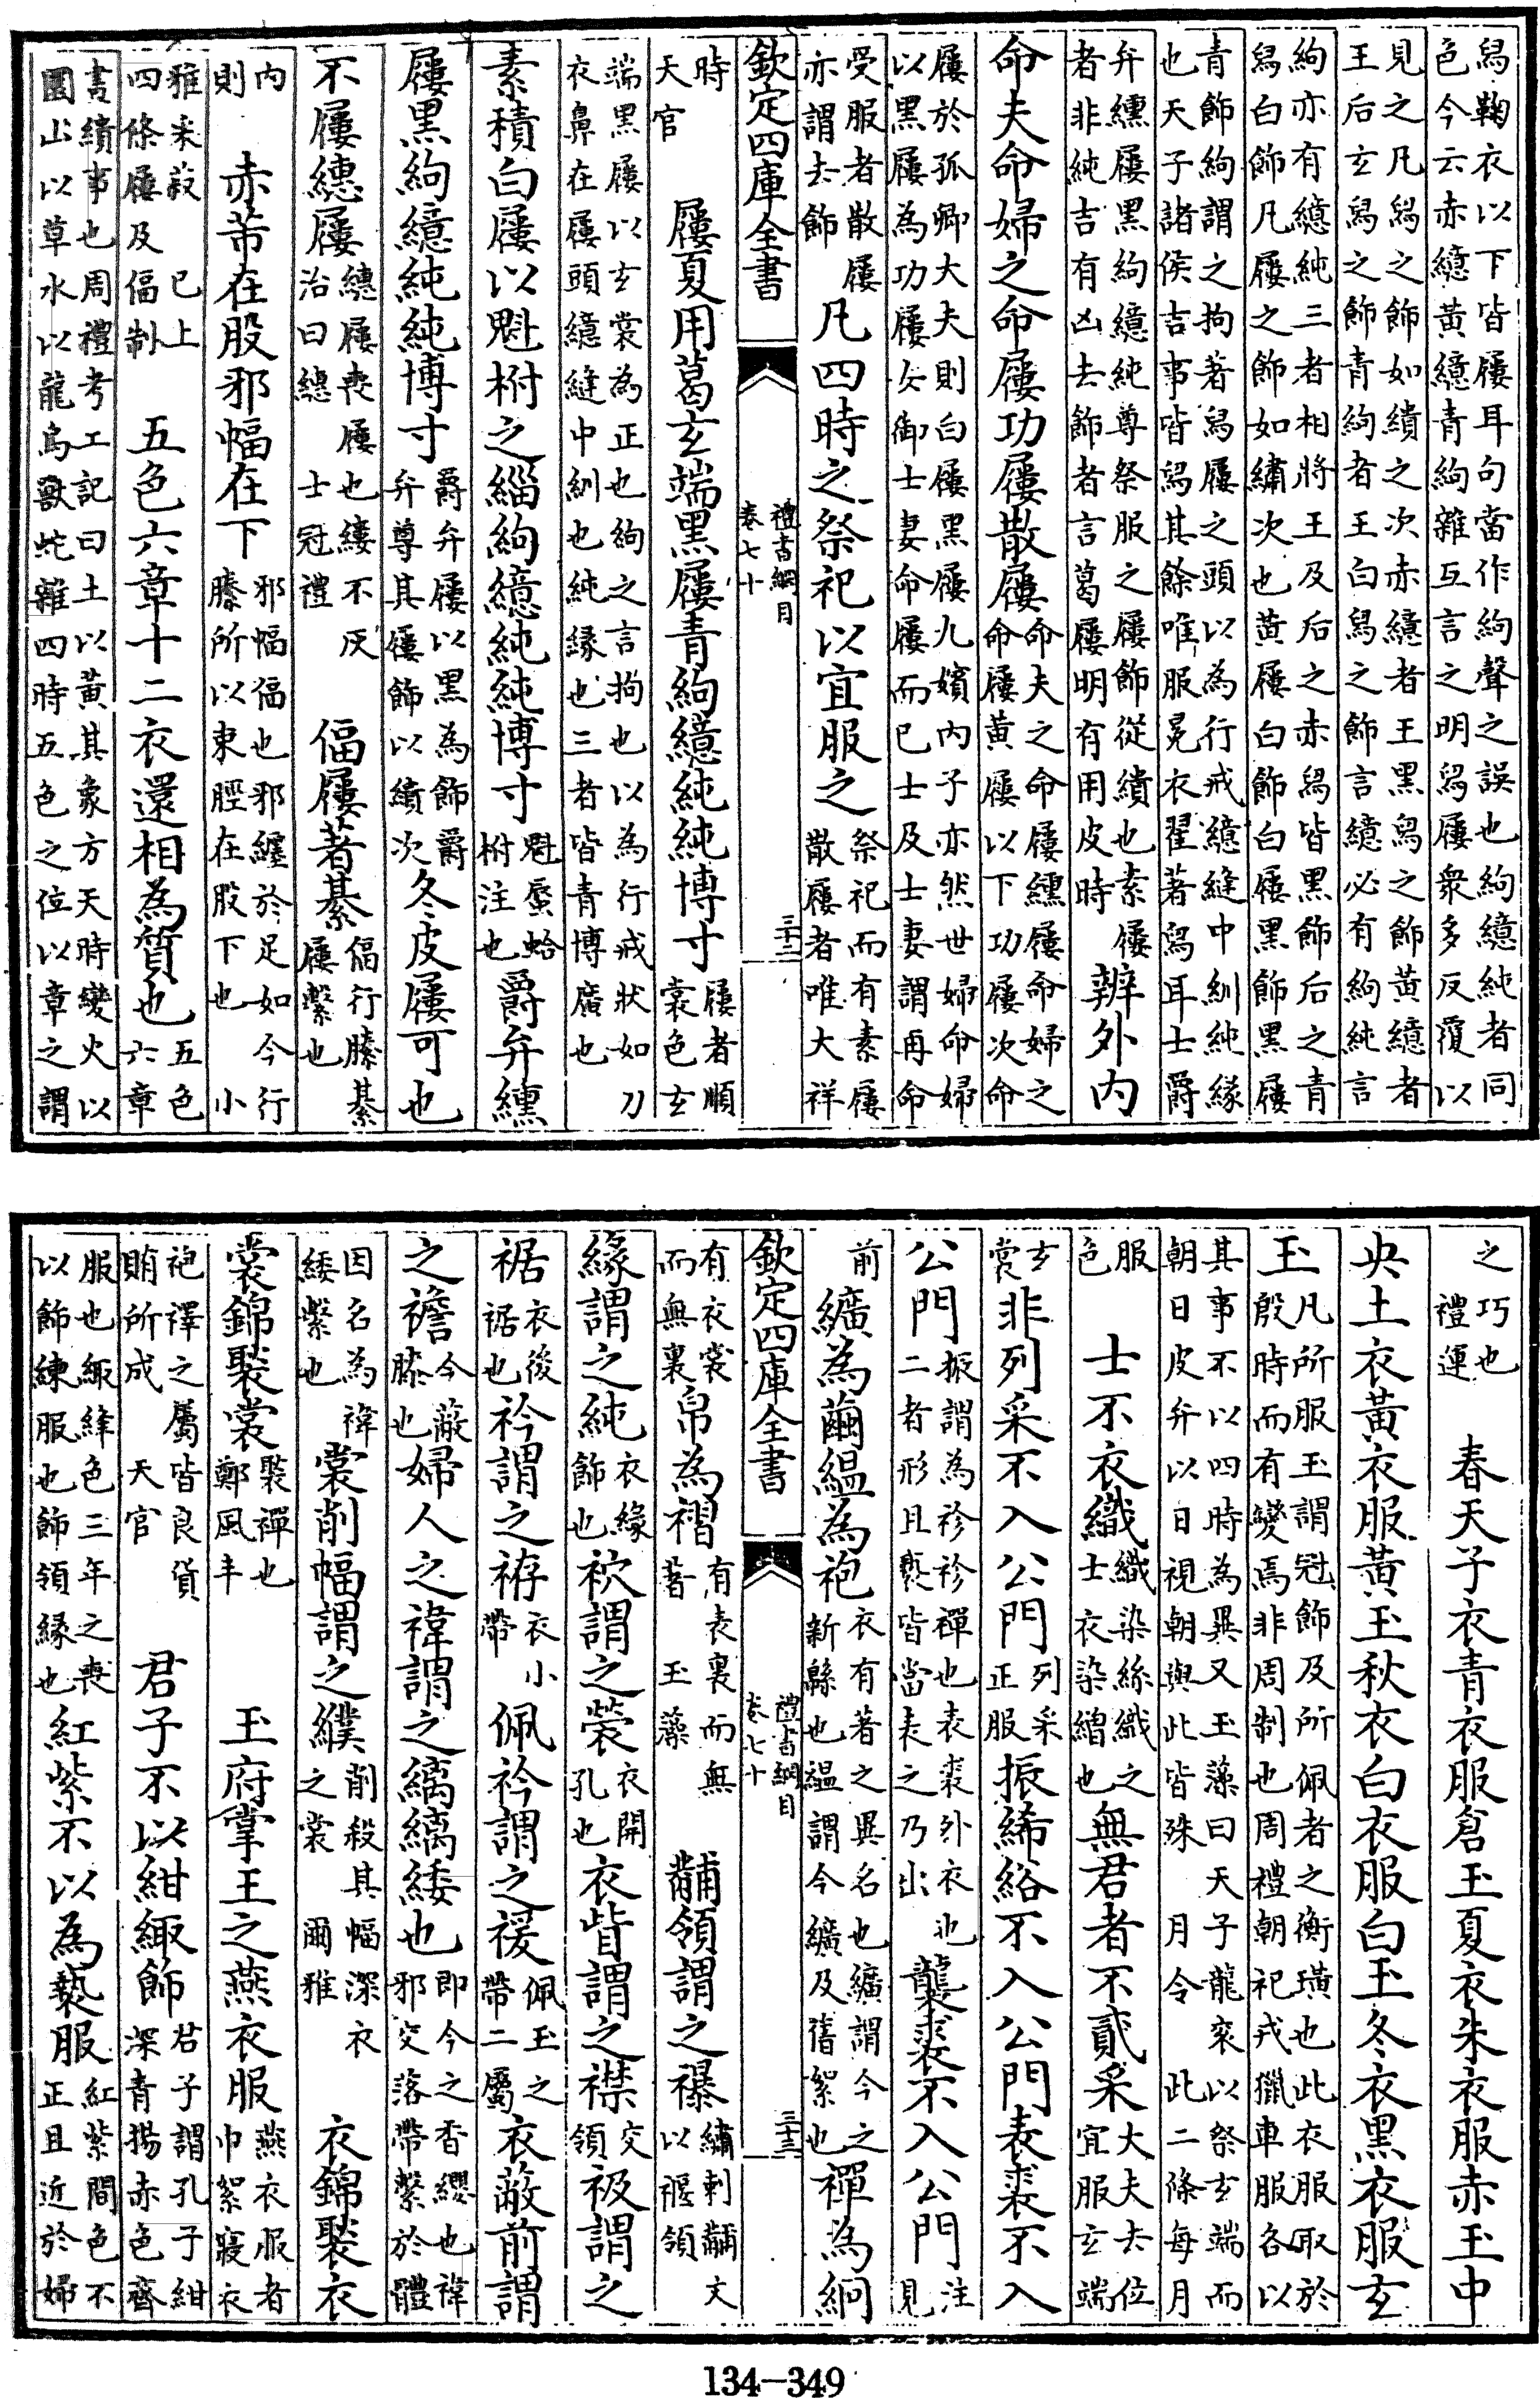 舄鞠衣以下皆屨耳句當作絇聲之誤也絇繶純者同
色今云赤繶黃繶青絇雜互言之明舄屨衆多反覆以
見之凡舄之飾如繢之次赤繶者王黑舄之飾黃繶者
王后玄舄之飾青絇者王白舄之飾言繶必有絇純言
絇亦有繶純三者相將王及后之赤舄皆黑飾后之青
舄白飾凡屨之飾如繡次也黃屨白飾白屨黑飾黑屨
青飾絇謂之拘著舄屨之頭以為行戒繶縫中紃純緣
也天子諸侯吉事皆舄其餘唯服冕衣翟著舄耳士爵
弁纁屨黑絇繶純尊祭服之屨飾從繢也素屨
者非純吉有凶去飾者言葛屨明有用皮時
辨外內
命夫命婦之命屨功屨散屨
命夫之命屨纁屨命婦之
命屨黃屨以下功屨次命
屨於孤卿大夫則白屨黑屨九嬪內子亦然世婦命婦
以黑屨為功屨女御士妻命屨而已士及士妻謂再命
受服者散屨
亦謂去飾
凡四時之祭祀以宜服之
祭祀而有素屨
散屨者唯大祥
欽定四庫全書
禮書綱目
卷七十
三十二
時
天官
屨夏用葛玄端黑屨青絇繶純純博寸
屨者順
裳色玄
端黑屨以玄裳為正也絇之言拘也以為行戒狀如刀
衣鼻在屨頭繶縫中紃也純緣也三者皆青博廣也
素積白屨以魁柎之緇絇繶純純博寸
魁蜃蛤
柎注也
爵弁纁
屨黑絇繶純純博寸
爵弁屨以黑為飾爵
弁尊其屨飾以繢次
冬皮屨可也
不屨繐屨
繐屨喪屨也縷不灰
治曰繐 士冠禮
偪屨著綦
偪行縢綦
屨繫也
內
則
赤芾在股邪幅在下
邪幅偪也邪纏於足如今行
縢所以束脛在股下也 小
雅采菽 已上
四條屨及偪制
五色六章十二衣還相為質也
五色
六章
畫繢事也周禮考工記曰土以黃其象方天時變火以
圜山以章水以龍鳥獸蛇雜四時五色之位以章之謂
之巧也
禮運
春天子衣青衣服倉玉夏衣朱衣服赤玉中
央土衣黃衣服黃玉秋衣白衣服白玉冬衣黑衣服玄
玉
凡所服玉謂冠飾及所佩者之衡璜也此衣服取於
殷時而有變焉非周制也周禮朝祀戎獵車服各以
其事不以四時為異又玉藻曰天子龍袞以祭玄端而
朝日皮弁以日視朝與此皆殊 月令 此二條每月
服
色
士不衣織
織染絲織之
士衣染繒也
無君者不貳采
大夫去位
宜服玄端
玄
裳
非列采不入公門
列采
正服
振絺綌不入公門表裘不入
公門
振謂為袗袗襌也表裘外衣也
二者形且褻皆當表之乃出
襲裘不入公門
注
見
前
纊為繭縕為袍
衣有著之異名也纊謂今之
新緜也縕謂今纊及舊絮也
襌為絅
欽定四庫全書
禮書綱目
卷七十
三十三
有衣裳
而無裏
帛為褶
有表裏而無
著 玉藻
黼領謂之襮
繡刺黼文
以褗領
緣謂之純
衣緣
飾也
袕謂之褮
衣開
孔也
衣眥謂之襟
交
領
衱謂之
裾
衣後
裾也
衿謂之袸
衣小
帶
佩衿謂之褑
佩玉之
帶二屬
衣蔽前謂
之襜
今蔽
膝也
婦人之褘謂之縭縭緌也
即今之香纓也褘
邪交落帶繫於體
因名為褘
緌繫也
裳削幅謂之纀
削殺其幅深衣
之裳 爾雅
衣錦褧衣
裳錦褧裳
褧襌也
鄭風丰
玉府掌王之燕衣服
燕衣服者
巾絮寢衣
袍襗之屬皆良貨
賄所成 天官
君子不以紺緅飾
君子謂孔子紺
深青揚赤色齊
服也緅絳色三年之喪
以飾練服也飾領緣也
紅紫不以為褻服
紅紫間色不
正且近於婦
134-349